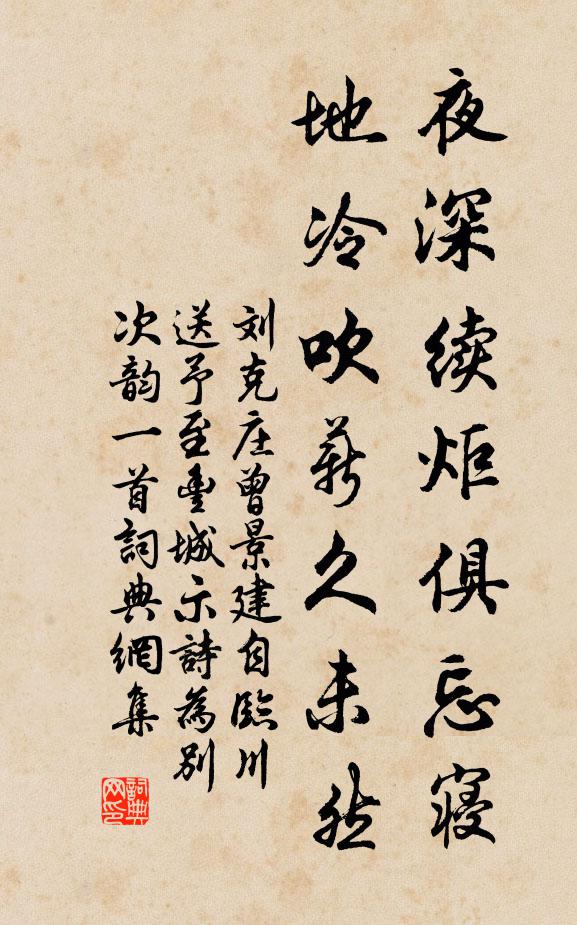 夜深續炬俱忘寝
地冷吹薪久未然
刘克庄曾景建自臨川
送予至豊城示詩為别
次韵一首詞典網集
詞典网印